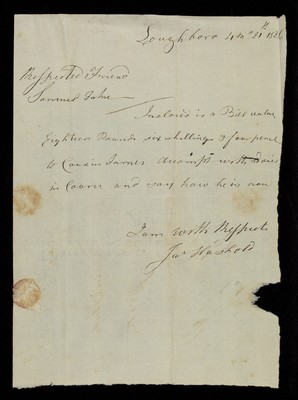 Loughboro 4 mo 21st 182
Respected Friend
Samuel
Inclosed is a Bill value
Eighteen Pounds six shillings & four pence
to Cousin James with
in Course and say how he is now
I am with Respect
Jas